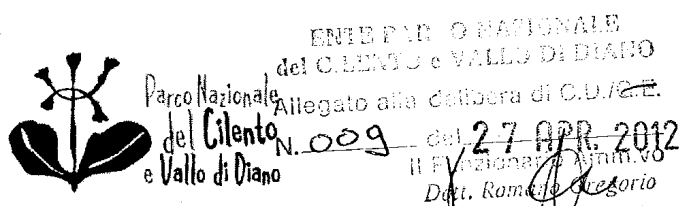 Parco Nazionale
del Cilento
e Vallo di Diano
ENTE PARCO NAZIONALE
del CILENTO e VALLO DI DIANO
Allegato alla delibera di C.D./G.E.
N. 009 del 27 APR. 2012
Il Funzionario Amm.vo
Dott. Romano Gregorio